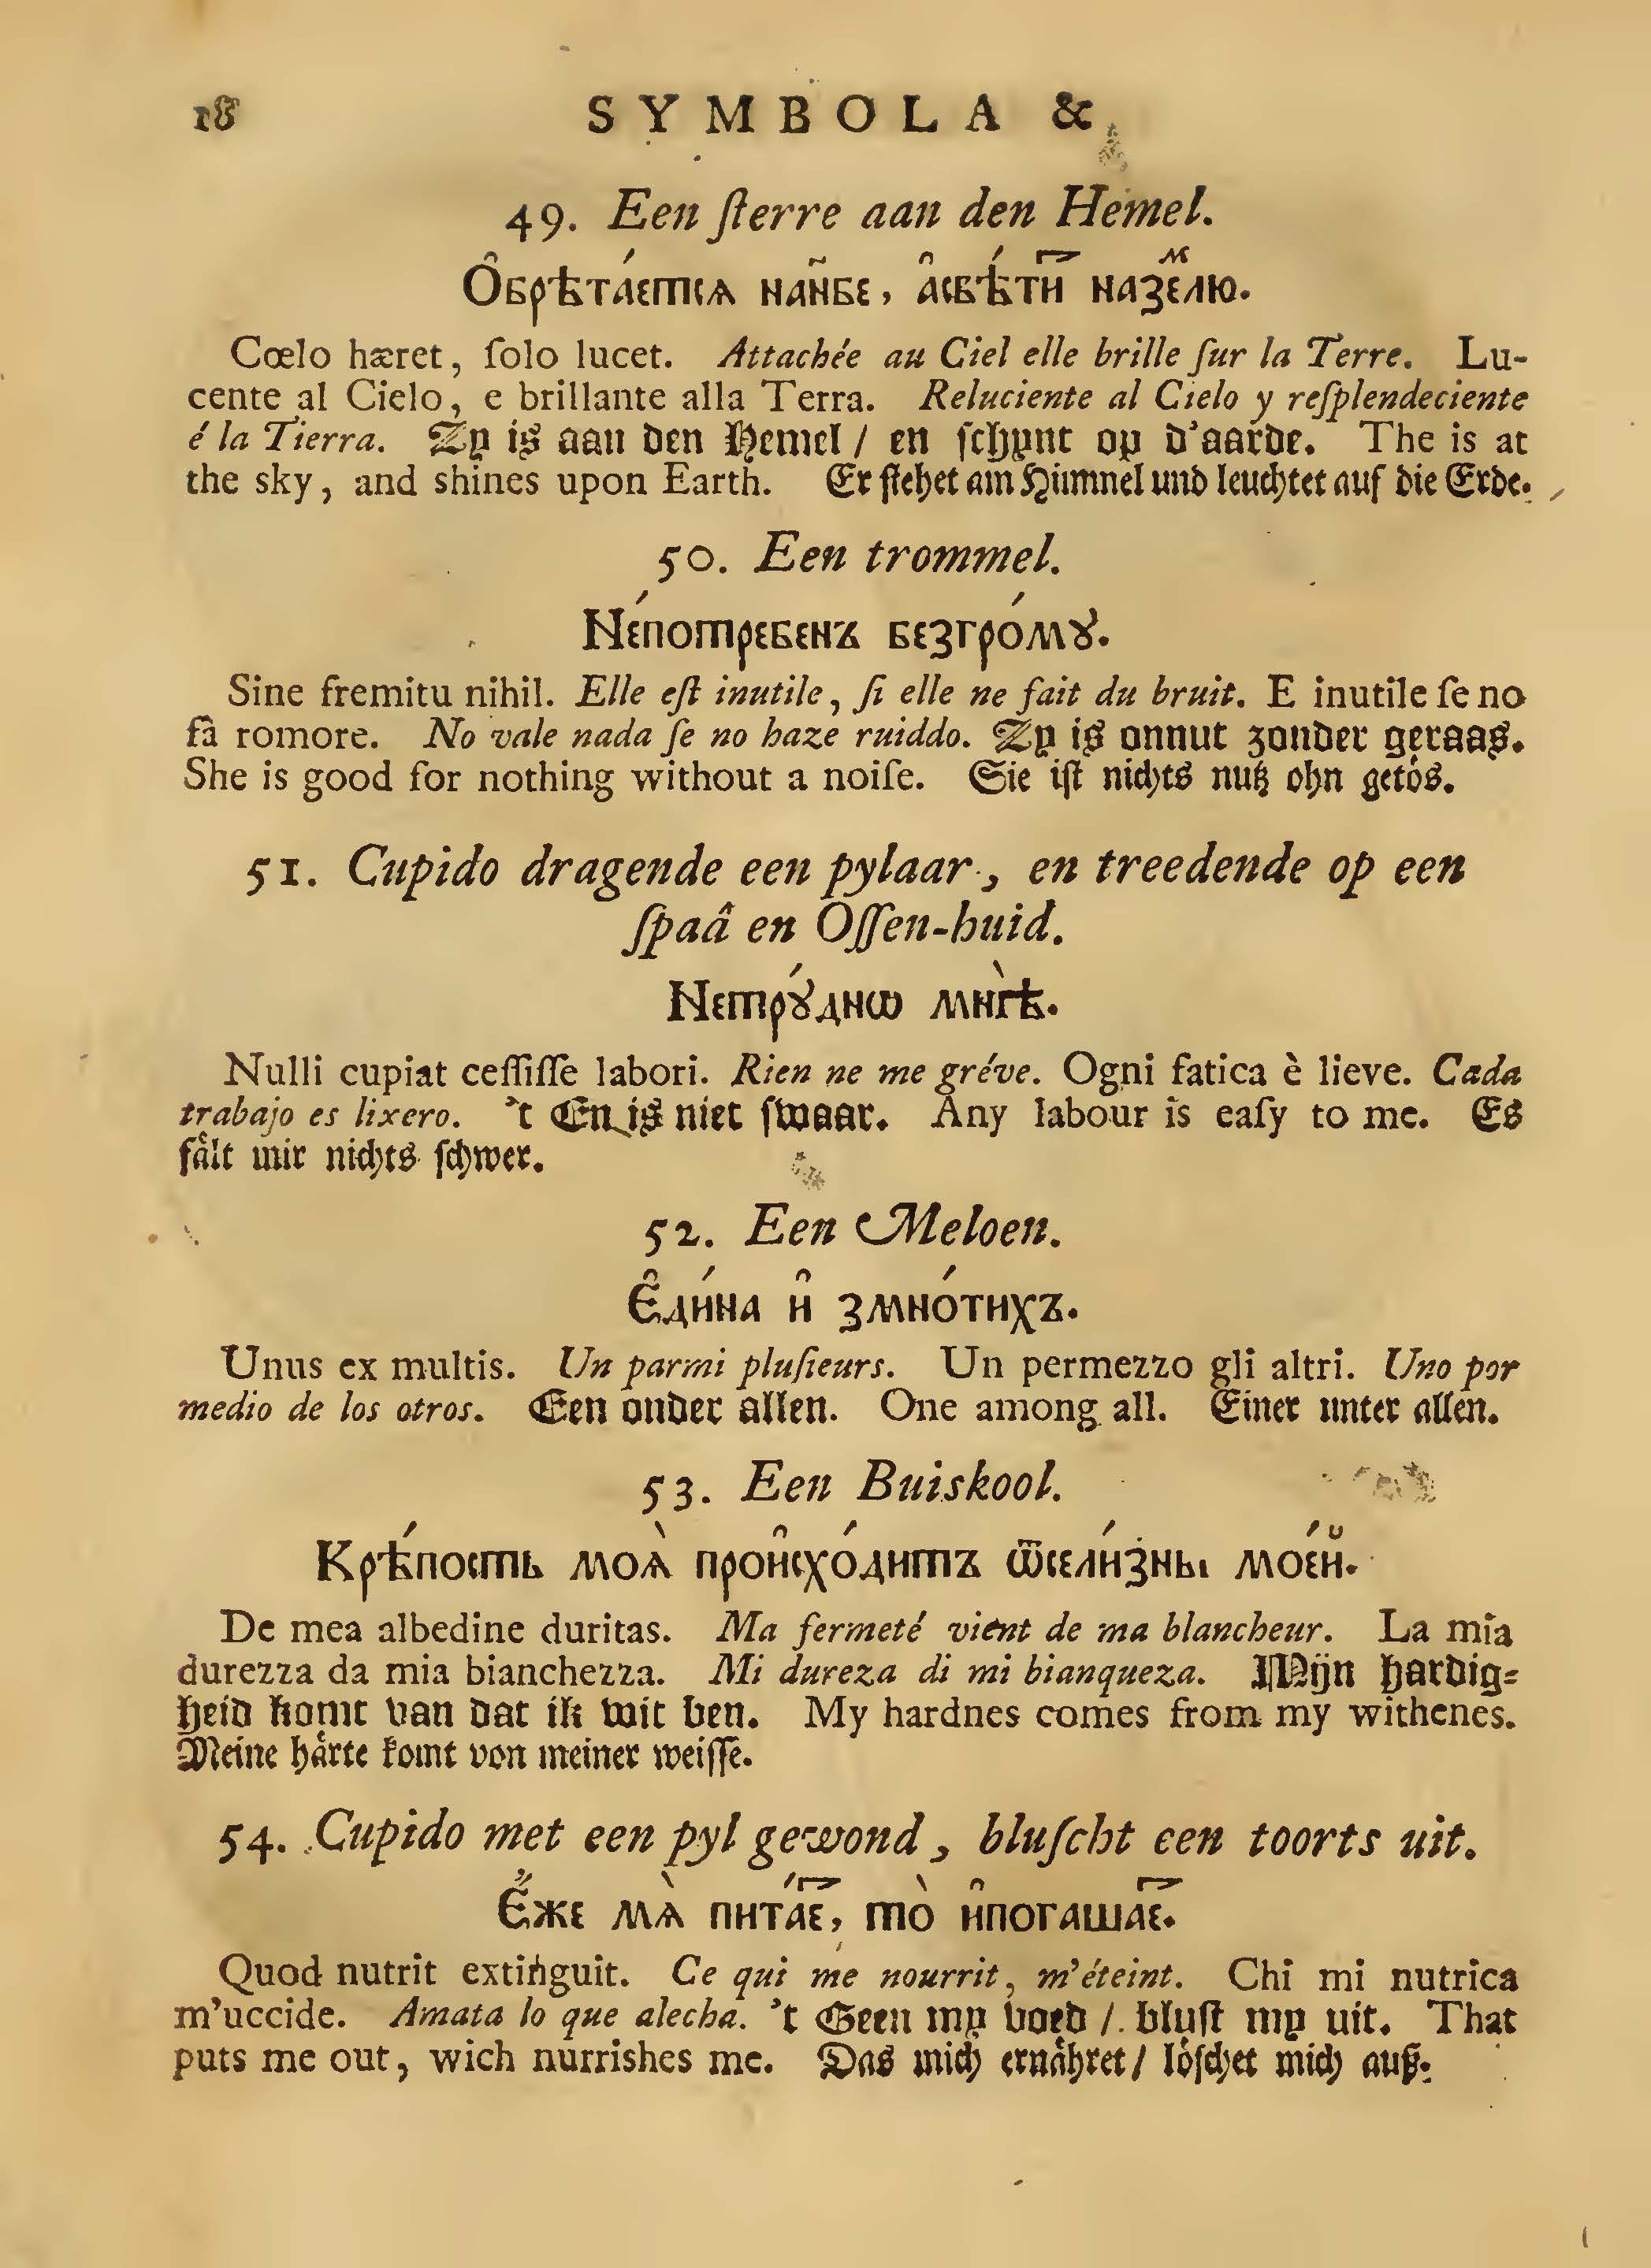 18 SYMBOLA &
49. Een ſterre aan den Hemel.
Ѻ҆брѣта́етсѧ нан҃бе, а҆свѣ́тиⷮ наземⷧ҇ю.
Cœlo hæret, ſolo lucet. Attachée au Ciel elle brille ſur la Terre. Lu-
cente al Cielo, e brillante alla Terra. Reluciente al Cielo y reſplendeciente
é la Tierra. Zy is aan den Hemel / en ſchynt op d'aarde. The is at
the sky, and shines upon Earth. Er ſtehet am Himmel und leuchtet auf die Erde.
50. Een trommel.
Не́потребенъ безгро́мꙋ.
Sine fremitu nihil. Elle eſt inutile, ſi elle ne fait du bruit. E inutile ſe no
fâ romore. No vale nada ſe no haze ruiddo. Zy is onnut zonder geraas.
She is good for nothing without a noiſe. Sie iſt nichts nutz ohn getös.
51. Cupido dragende een pylaar, en treedende op een
ſpaâ en Oſſen-huid.
Нетрꙋ́днѡ мнꙓ̀.
Nulli cupiat ceſſiſſe labori. Rien ne me gréve. Ogni fatica è lieve. Cada
trabajo es lixero. 't En is niet ſwaar. Any labour is eaſy to me. Es
fält mir nichts ſchwer.
52. Een Meloen.
Є҆ди́на и҆ змно́тихъ.
Unus ex multis. Un parmi pluſieurs. Un permezzo gli altri. Uno por
medio de los otros. Een onder allen. One among all. Einer unter allen.
53. Een Buiskool.
Крѣ́пость моѧ̀ прои҆схо́дитъ ѿсели́зны мое́й.
De mea albedine duritas. Ma fermeté vient de ma blancheur. La mia
durezza da mia bianchezza. Mi dureza di mi bianqueza. Mijn hardig-
heid komt van dat ik wit ben. My hardnes comes from my withenes.
Meine härte komt von meiner weiſſe.
54. Cupido met een pyl gewond, bluſcht een toorts uit.
Є҆́же мѧ̀ пита́еⷮ, то̀ и҆погашаеⷮ.
Quod nutrit extinguit. Ce qui me nourrit, m'éteint. Chi mi nutrica
m'uccide. Amata lo que alecha. 't Geen my voed /. bluſt my uit. That
puts me out, wich nurrishes me. Das mich ernähret / löſchet mich auß.